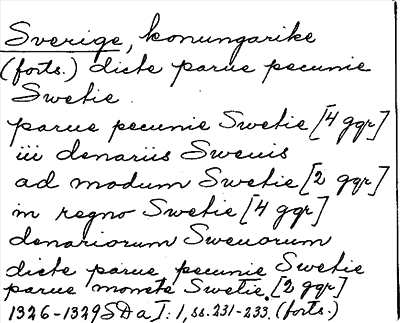 Sverige, konungarike
(forts.) dicte parue pecunie
Swetie.
parue pecunie Swetie [4 ggr]
iii denariis Sweuis
ad modum Swetie [2 ggr]
in regno Swetie [4 ggr]
denariorum Sweuorum
dicte parue pecunie Swetie
parue monete Swetie, [2 ggr]
1326-1329 SD a I: 1, ss. 231-233. (forts.)